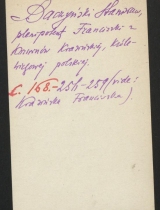 Daczyński Stanisław,
plenipotent Franciszki z
Krasińskiej, króle-
wiczowej polskiej.
C. 168. 254-259 (vide:
Krasińska Franciszka)